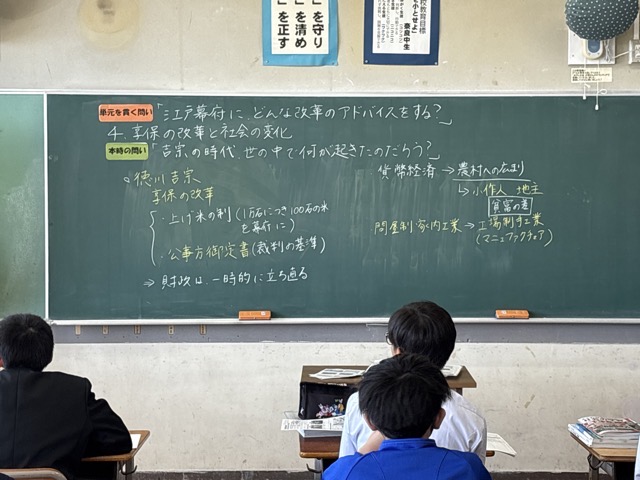 を守り
を清め
を正す
校教育目標
を小とせよ」
奈良中生
単元を貫く問い 「江戸幕府に、どんな改革のアドバイスをする?」
4. 享保の改革と社会の変化
本時の問い 「吉宗の時代、世の中で何が起きたのだろう?」
徳川吉宗
享保の改革
・上げ米の制(1万石につき100石の米
を幕府に)
・公事方御定書(裁判の基準)
⇒財政は、一時的に立ち直る
貨幣経済→農村への広まり
↳小作人 地主
貧富の差
問屋制家内工業→工場制手工業
(マニュファクチュア)